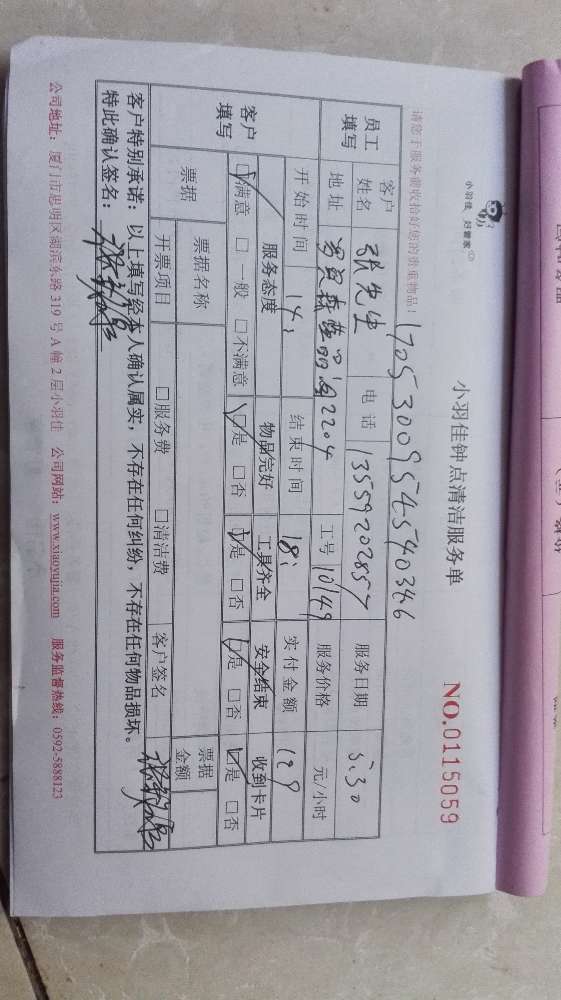 小羽佳 好管家
小羽佳钟点清洁服务单
NO.0115059
请您于服务前收拾好您的贵重物品!
17053009545540346
员工填写 客户姓名 张先生 电话 13559202857 服务日期 5.30
地址 2204 工号 10149 服务价格 元/小时
客户填写 开始时间 14: 结束时间 18: 实付金额 129
服务态度 物品完好 工具齐全 安全结束 收到卡片
☑满意 □一般 □不满意 ☑是 □否 ☑是 □否 ☑是 □否 ☑是 □否
票据 票据名称 票据金额
开票项目 □服务费 □清洁费 客户签名
客户特别承诺:以上填写经本人确认属实,不存在任何纠纷,不存在任何物品损坏。
特此确认签名:
公司地址:厦门市思明区湖滨东路 319 号 A 幢 2 层小羽佳 公司网站:www.xiaoyujia.com 服务监督热线:0592-5888123